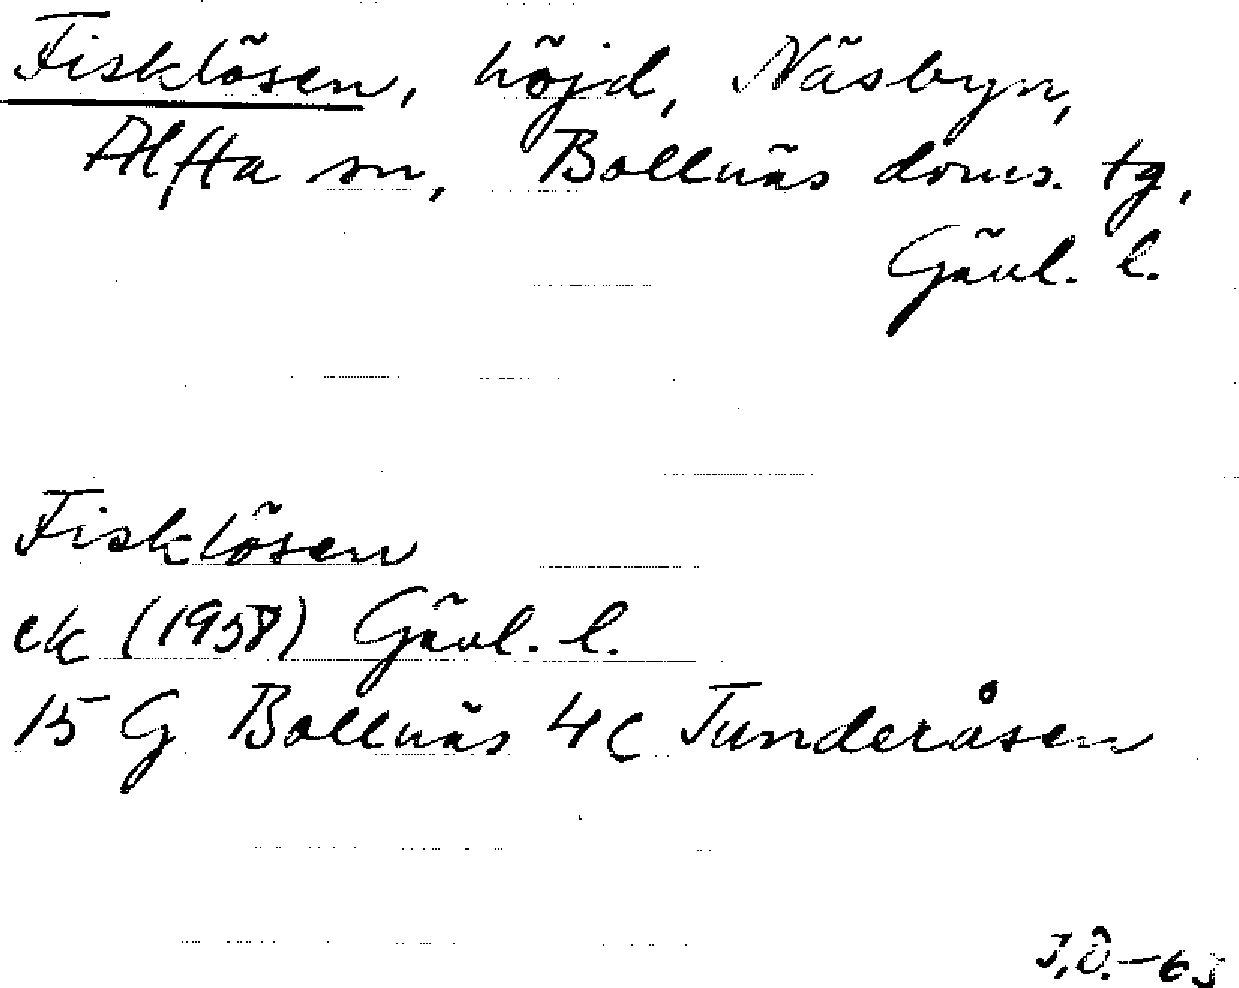 Fisklösen, höjd, Näsbyn,
Alfta sn, Bollnäs doms. tg,
Gävl. l.
Fisklösen
ek (1958) Gävl. l.
15 G Bollnäs 4c Tunderåsen
J.Ö.-63